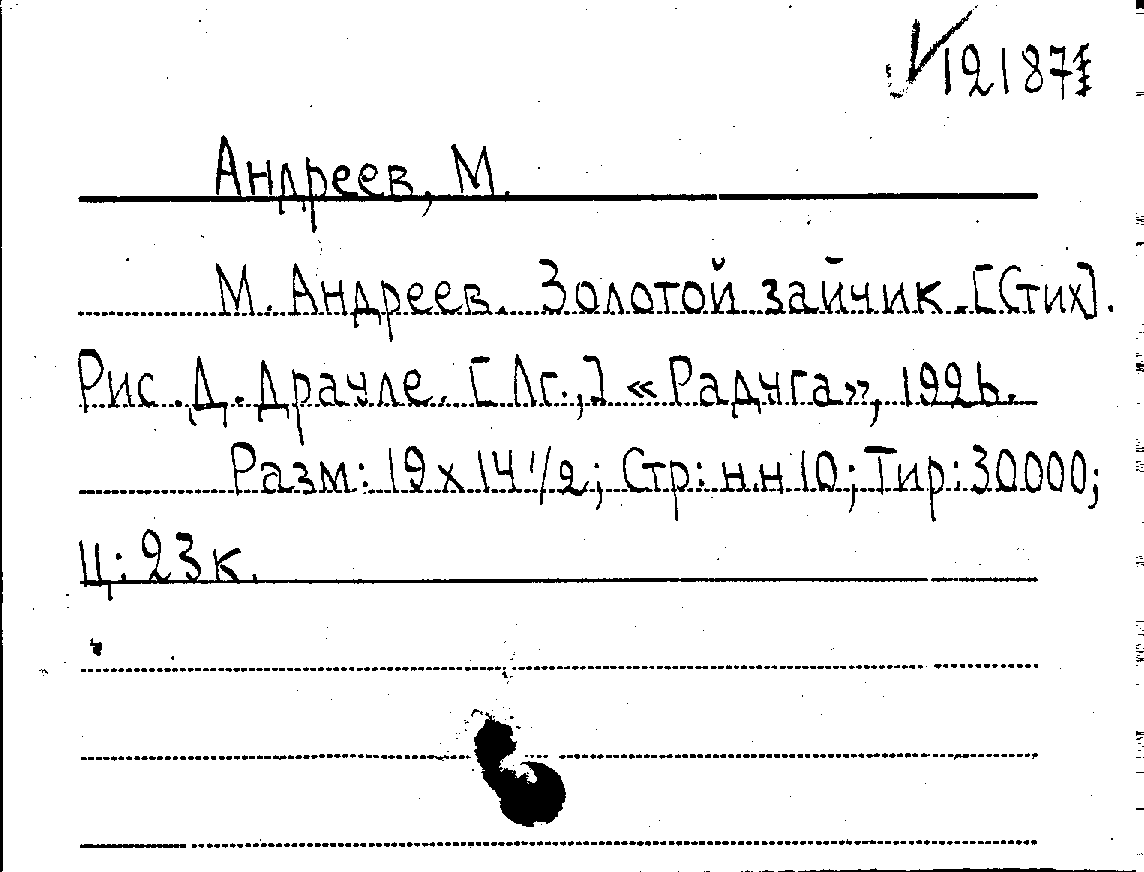 № 12187
Андреев, М.
М. Андреев. Золотой зайчик. [Стих].
Рис. Д. Драуле. [Лг.,] «Радуга», 1926.
Разм: 19 х 14 1/2; Стр: н.н 10; Тир: 30000;
Ц: 23 к.